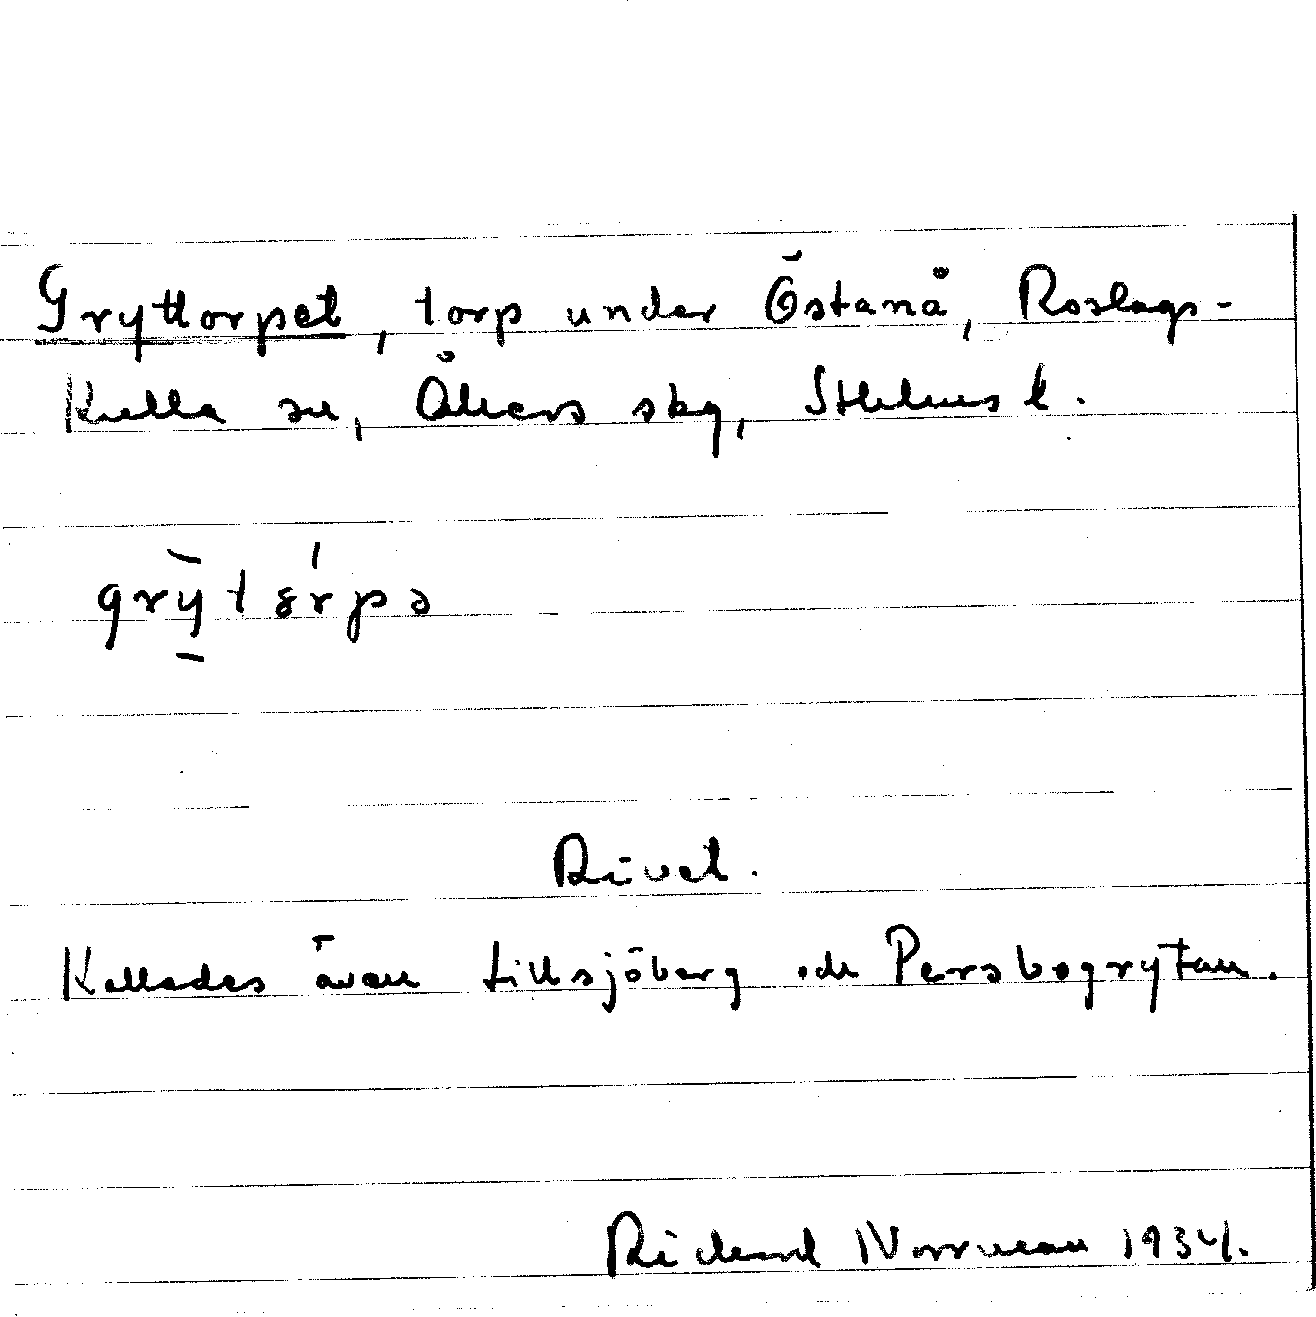 Gryttorpet, torp under Östanå, Roslags-
Kulla sn, Åkers skg, Sthlms l.
Rivet.
Kallades även Lillsjöberg och Persbogrytan.
Rickard Norrman 1934.